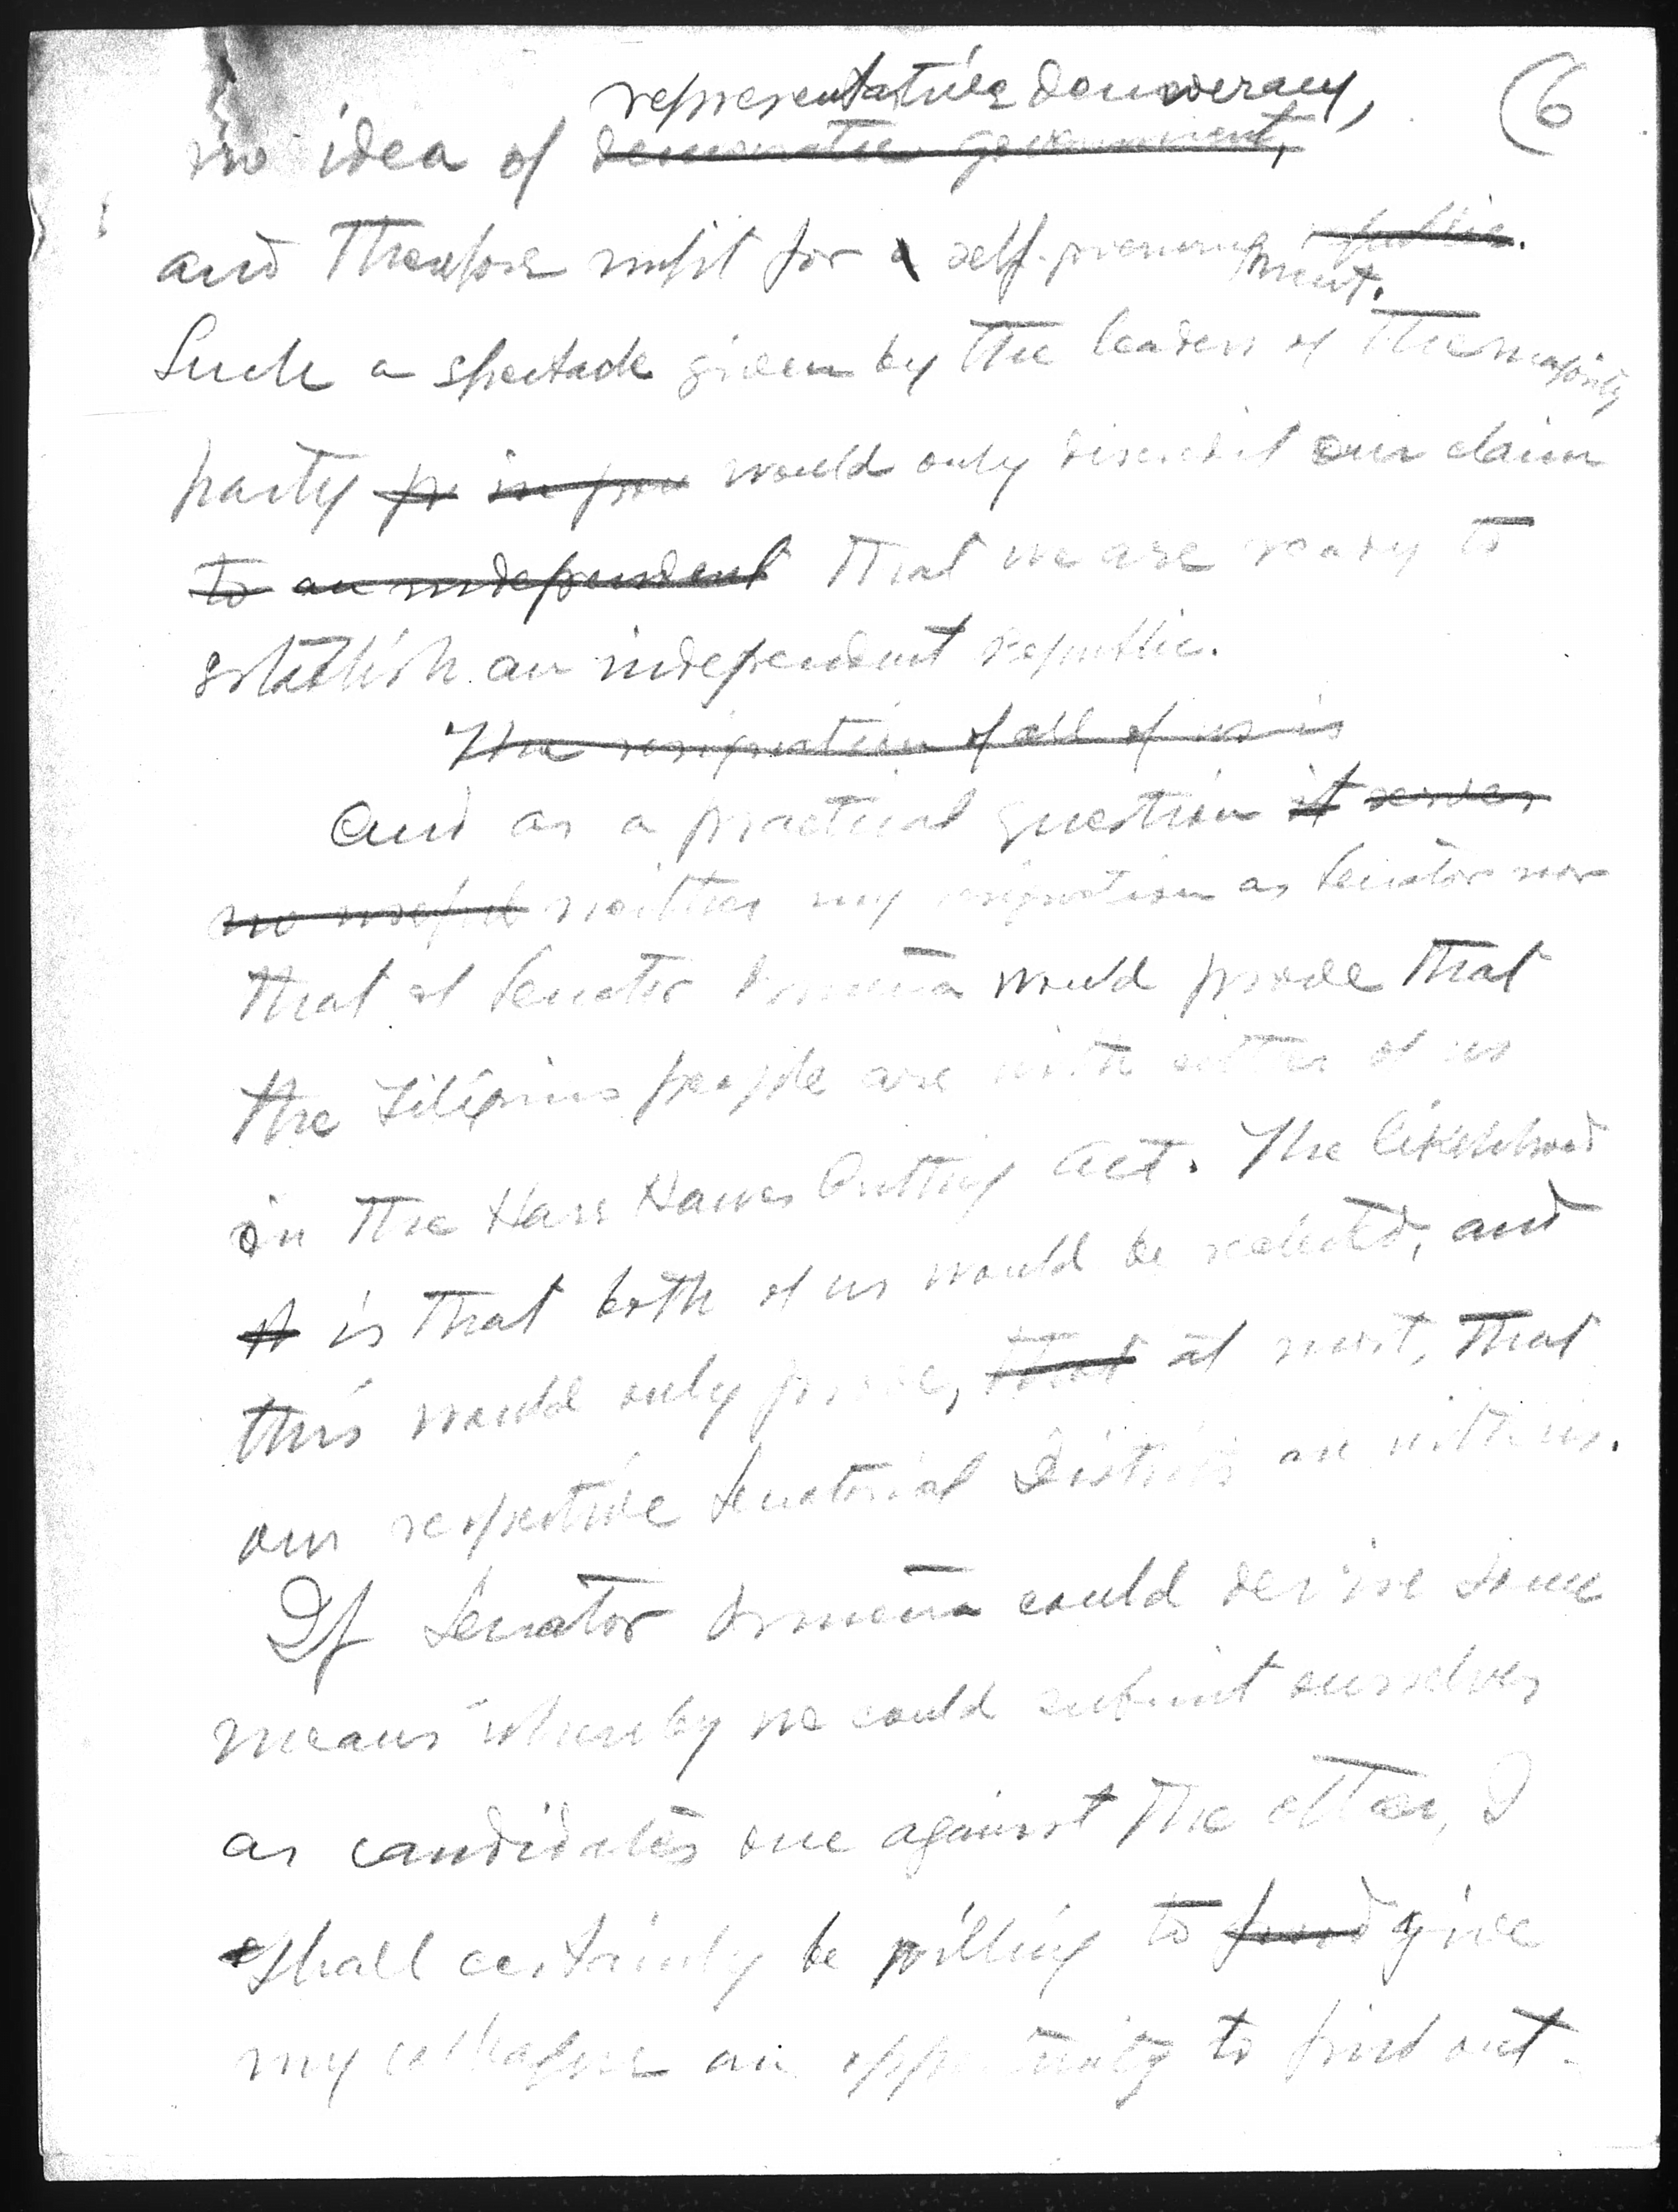 representative democracy, (6
no idea of democratic government,
and therefore unfit for a self-government republic.
Such a spectacle given by the leaders of the majority
party pr in prov would only discredit our claim
to an independent that we are ready to
establish an independent republic.
The resignation of all of us is
And as a practical question it serves
no useful neither my resignation as Senator nor
that of Senator Osmeña would prove that
the Filipino people are with either of us
on the Hare Hawes Cutting Act. The likelihood
it is that both of us would be reelected, and
this would only prove, that at most, that
our respective Senatorial Districts are with us.
If Senator Osmeña could devise some
means whereby we could submit ourselves
as candidates one against the other, I
shall certainly be willing to give
my colleague an opportunity to find out